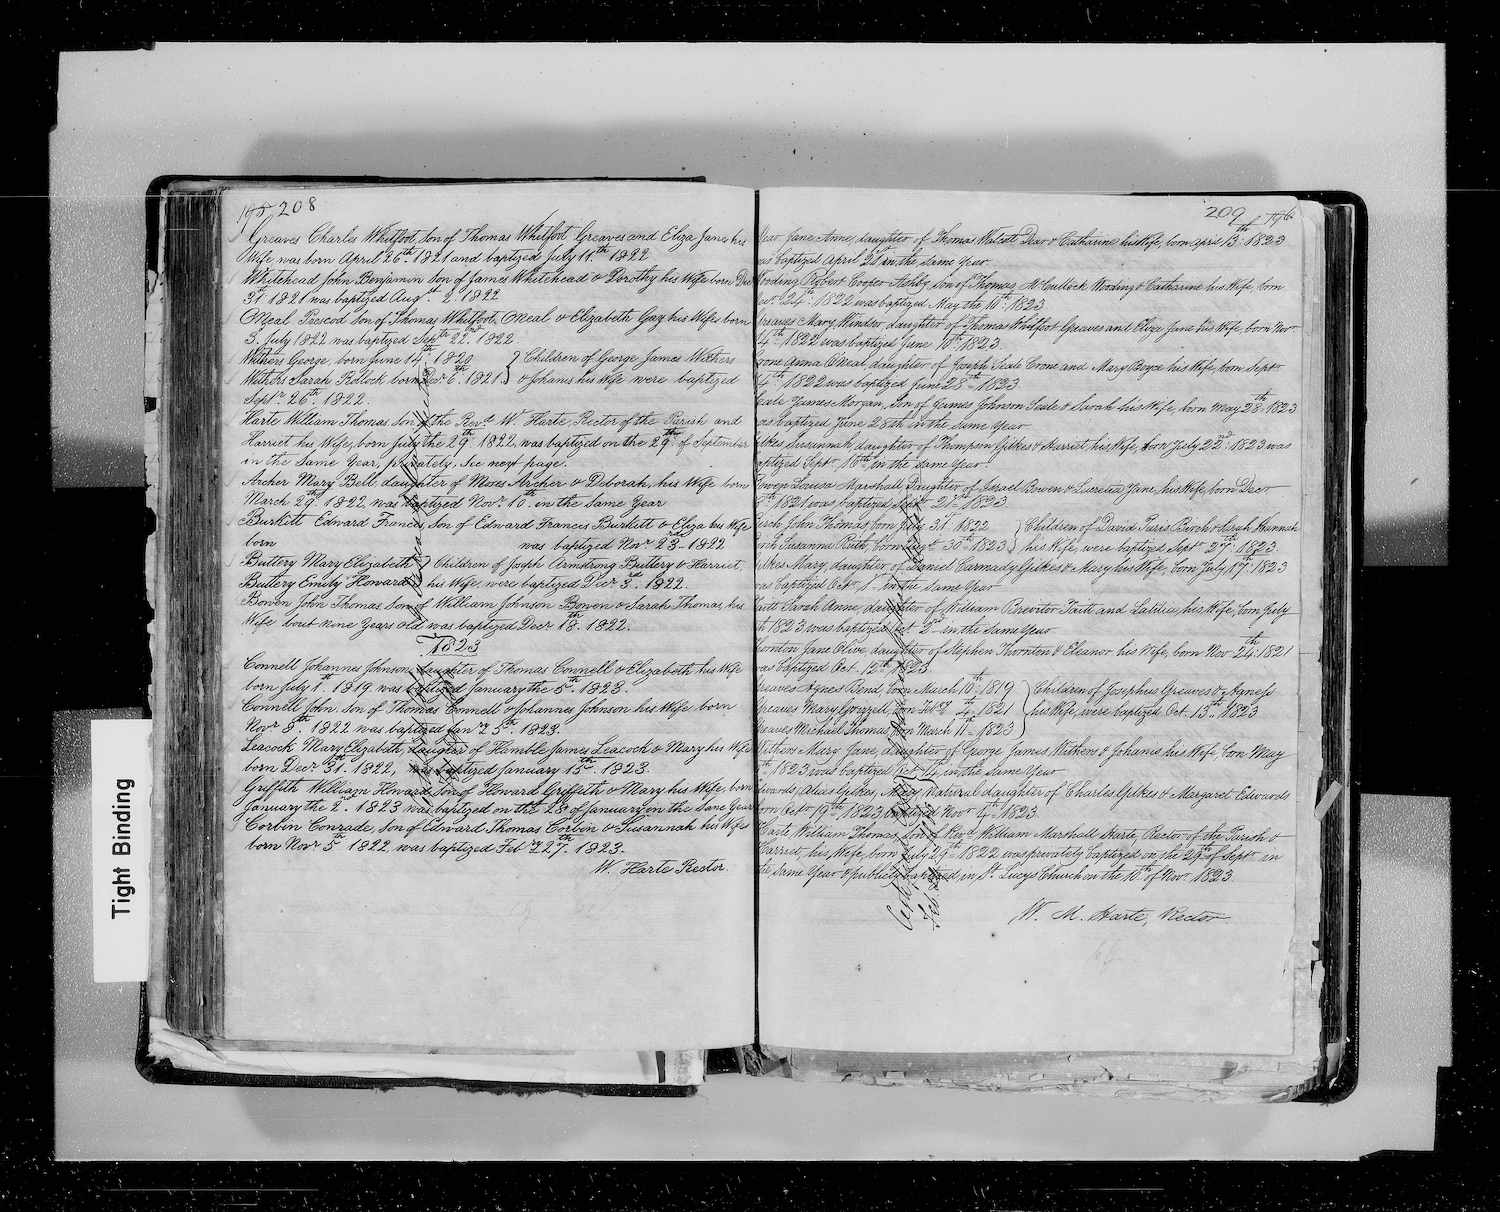 195 208
Greaves Charles Whitfoot, Son of Thomas Whitfoot Greaves and Eliza Jane his
Wife was born April 26th 1821 and baptized July 11th 1822
Whitehead John Benjamin Son of James Whitehead & Dorothy his Wife born Dec
31 1821 was baptized Augt 2 1822
ONeal Prescod Son of Thomas Whitfoot ONeal & Elizabeth Gay his Wife born
3 July 1822 was baptized Sept 22nd 1822
Withers George, born June 14th 1820 } Children of George James Withers
Withers Sarah Pollock born Decr 6th 1821 } & Johanis his Wife were baptized
Septr 26th 1822.
Harte William Thomas Son of the Revd W. Harte, Rector of the Parish and
Harriet his Wife, born July the 29th 1822, was baptized on the 29th of September
in the Same Year, privately, See next page.
Archer Mary Bell daughter of Moses Archer & Deborah, his Wife born
March 29th 1822, was baptized Novr 10th in the Same Year
Burkitt Edward Frances, Son of Edward Frances Burkitt & Eliza his Wife
born was baptized Novr 23rd 1822
Buttery Mary Elizabeth } Children of Joseph Armstrong Buttery & Harriet,
Buttery Emily Howard } his Wife, were baptized Decr 3rd 1822.
Bowen John Thomas, Son of William Johnson Bowen & Sarah Thomas, his
Wife bout nine Years old was baptized Decr 18th 1822.
1823
Connell Johannes Johnson, daughter of Thomas Connell & Elizabeth his Wife
born July 1st 1819 was baptized January the 5th 1823.
Connell John Son of Thomas Connell & Johannes Johnson his Wife born
Novr 8th 1822 was baptized Jany 5th 1823.
Leacock Mary Elizabeth, daughter of Hamble James Leacock & Mary his Wife
born Decr 31st 1822, was baptized January 15th 1823.
Griffith William Howard Son of Howard Griffith & Mary his Wife, born
January the 2d 1823 was baptized on the 28 of January in the Same Year
Corbin Conrade, Son of Edward Thomas Corbin & Susannah his Wife
born Novr 5th 1822, was baptized Feby 27th 1823.
W. Harte Rector.
209 196
Dear Jane Anne, daughter of Thomas Walcott Dear & Catharine his Wife, born April 13th 1823
was baptized April 28 in the same Year
Wooding Robert Cooper Ashby, Son of Thomas McCullock Wooding & Catharine his Wife, born
24th 1822 was baptized May the 10th 1823
Greaves Mary Windsor, daughter of Thomas Whitfoot Greaves and Eliza Jane his Wife, born Novr
14th 1822 was baptized June 10th 1823
Crone Anna ONeal, daughter of Joseph Seale Crone and Mary Boyce his Wife, born Septr
14th 1822 was baptized June 28th 1823
Seale James Morgan, Son of James Johnson Seale & Sarah his Wife, born May 28th 1823
was baptized June 28th in the same Year
Gilkes Susannah, daughter of Thompson Gilkes & Harriet, his Wife, born July 22nd 1823 was
baptized Septr 10th in the same Year
Bowen Louisa Marshall Daughter of Israel Bowen & Lucretia Jane, his Wife, born Decr
1821 was baptized Septr 21st 1823
Birch John Thomas, born July 31 1822 } Children of David Turis Birch & Sarah Hannah
Birch Susanna Ruth, born Augt 30th 1823 } his Wife, were baptized Septr 27th 1823
Gilkes Mary, daughter of Daniel Carmady Gilkes & Mary his Wife, born July 17th 1823
was baptized Octr 1st in the same Year
Tait Sarah Anne, daughter of William Brewster Tait and Lalitia, his Wife, born July
1823 was baptized Oct 2nd in the same Year
Thornton Jane Olive, daughter of Stephen Thornton & Eleanor his Wife, born Novr 24th 1821
was baptized Oct. 12th 1823
Greaves Agness Bend, born March 10th 1819 } Children of Josephus Greaves & Agness
Greaves Mary Gorzzell, born Feby 4th 1821 } his Wife, were baptized Oct. 13th 1823
Greaves Michael Thomas, born March 11th 1823 }
Withers Mary Jane, daughter of George James Withers & Johanis his Wife, born May
1823 was baptized Oct 14 in the same Year
Edwards, Alias Gilkes, Mary Natural daughter of Charles Gilkes & Margaret Edwards
born Octr 19th 1823, baptized Novr 4th 1823
Harte William Thomas, Son of Revd William Marshall Harte, Rector of the Parish &
Harriet, his Wife, born July 29th 1822 was privately baptized on the 29th of Septr in
the same Year & publicly baptized in St Lucys Church on the 10th of Novr 1823
W. M. Harte, Rector
Tight Binding